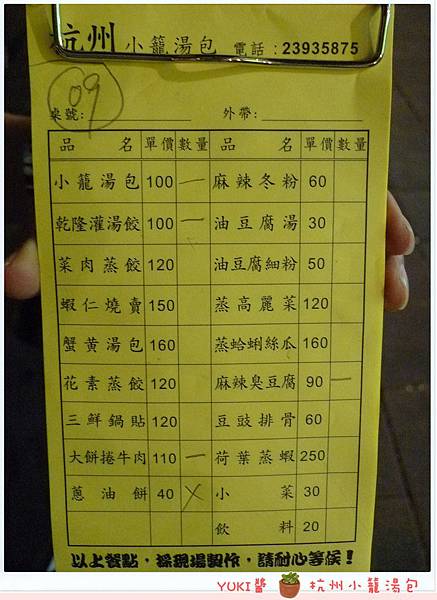 杭州 小籠湯包 電話:23935875
09
桌號: 外帶:
品名 單價 數量 品名 單價 數量
小籠湯包 100 一 麻辣冬粉 60
乾隆灌湯餃 100 一 油豆腐湯 30
菜肉蒸餃 120 油豆腐細粉 50
蝦仁燒賣 150 蒸高麗菜 120
蟹黄湯包 160 蒸蛤蜊絲瓜 160
花素蒸餃 120 麻辣臭豆腐 90 一
三鮮鍋貼 120 豆豉排骨 60
大餅捲牛肉 110 一 荷葉蒸蝦 250
蔥油餅 40 X 小菜 30
飲料 20
以上餐點，採現場製作，請耐心等候！
YUKI醬 杭州小籠湯包